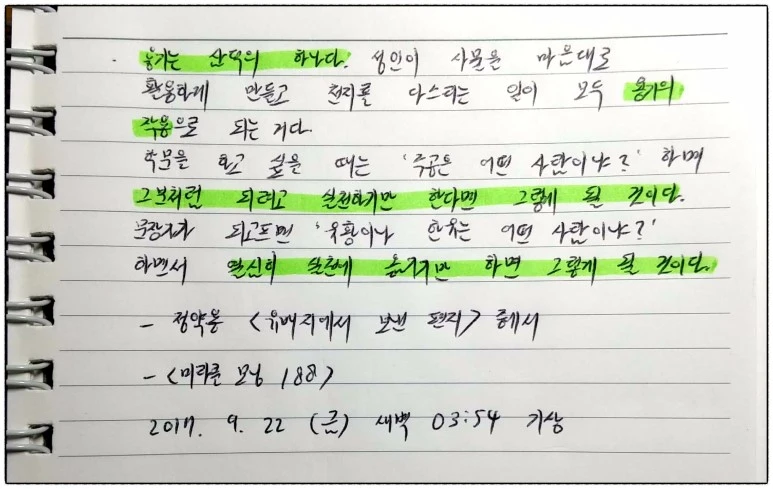 용기는 삼덕의 하나다. 성인이 사물을 마음대로
활용하게 만들고 천지를 다스리는 일이 모두 용기의
작용으로 되는 거다.
학문을 하고 싶을 때는 '주공은 어떤 사람이냐?' 하며
그분처럼 되려고 실천하기만 한다면 그렇게 될 것이다.
문장가가 되고프면 '유향이나 한유는 어떤 사람이냐?'
하면서 열심히 실천에 옮기기만 하면 그렇게 될 것이다.
- 정약용 <유배지에서 보낸 편지> 중에서
- <미라클 모닝 188>
2017. 9. 22 (금) 새벽 03:54 기상